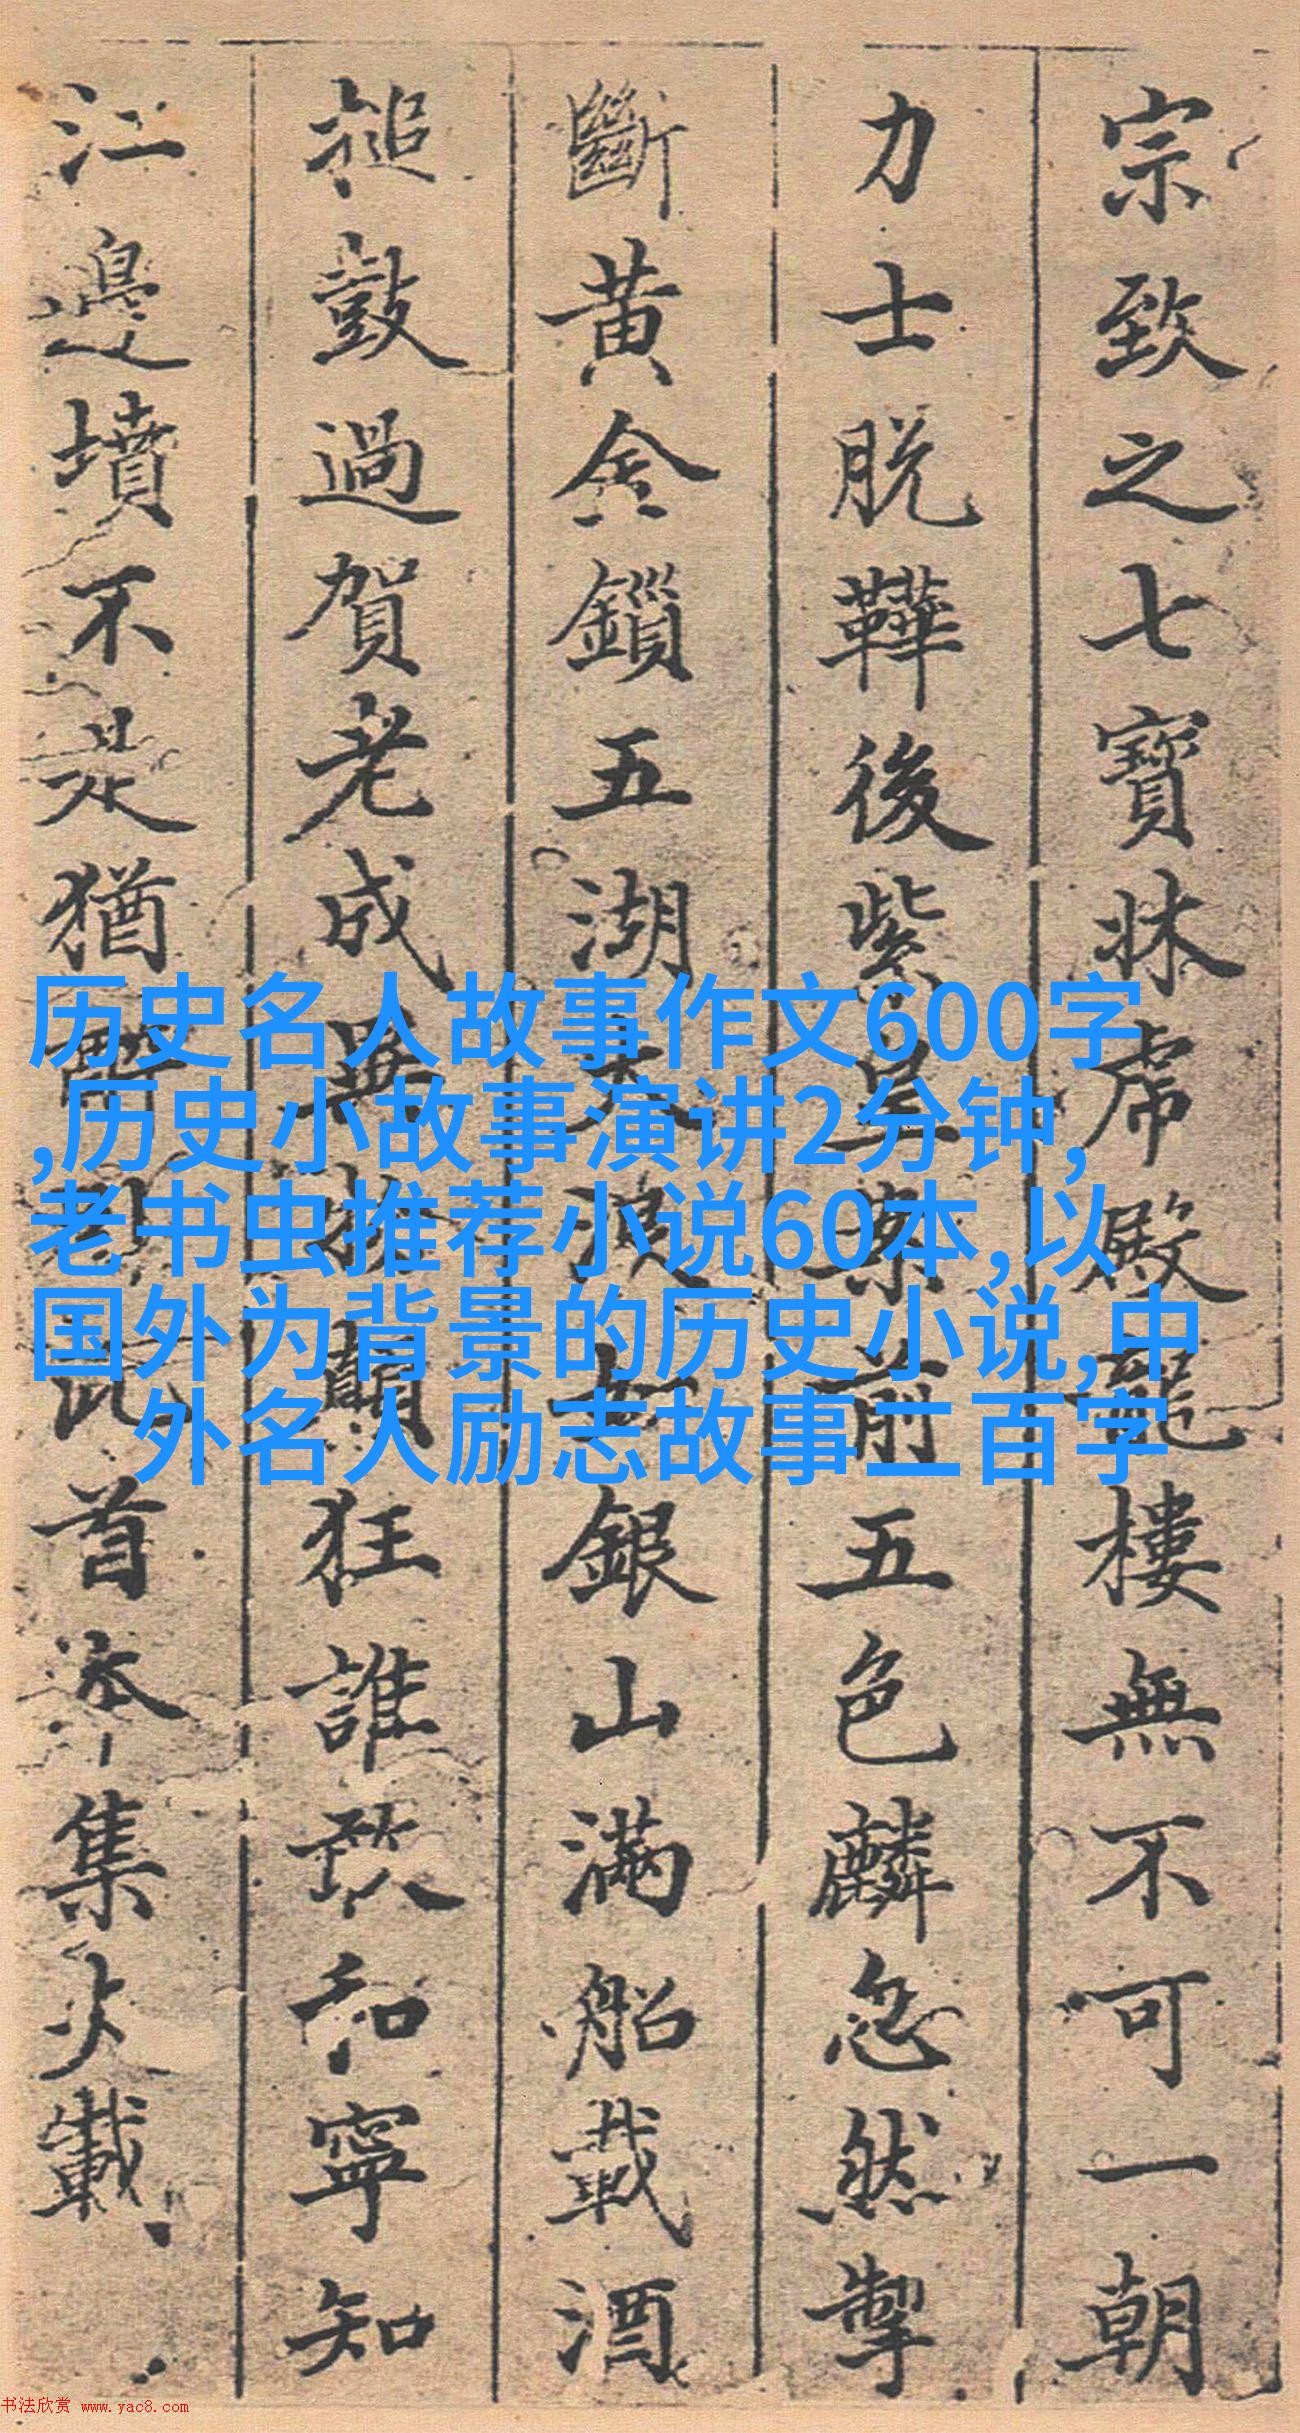 宗致之七寶牀虎殿龍樓無不可一朝
力士脱鞾後紫皇案前五色麟忽然掣
斷黄金鎖五湖大浪如銀山滿船載酒
搥鼓過賀老成異物顛狂誰敢和寧知
江邊墳不是猶醉卧此首本集失載
历史名人故事作文600字
,历史小故事演讲2分钟,
老书虫推荐小说60本,以
国外为背景的历史小说,中
外名人励志故事二百字
书法欣赏 www.yac8.com